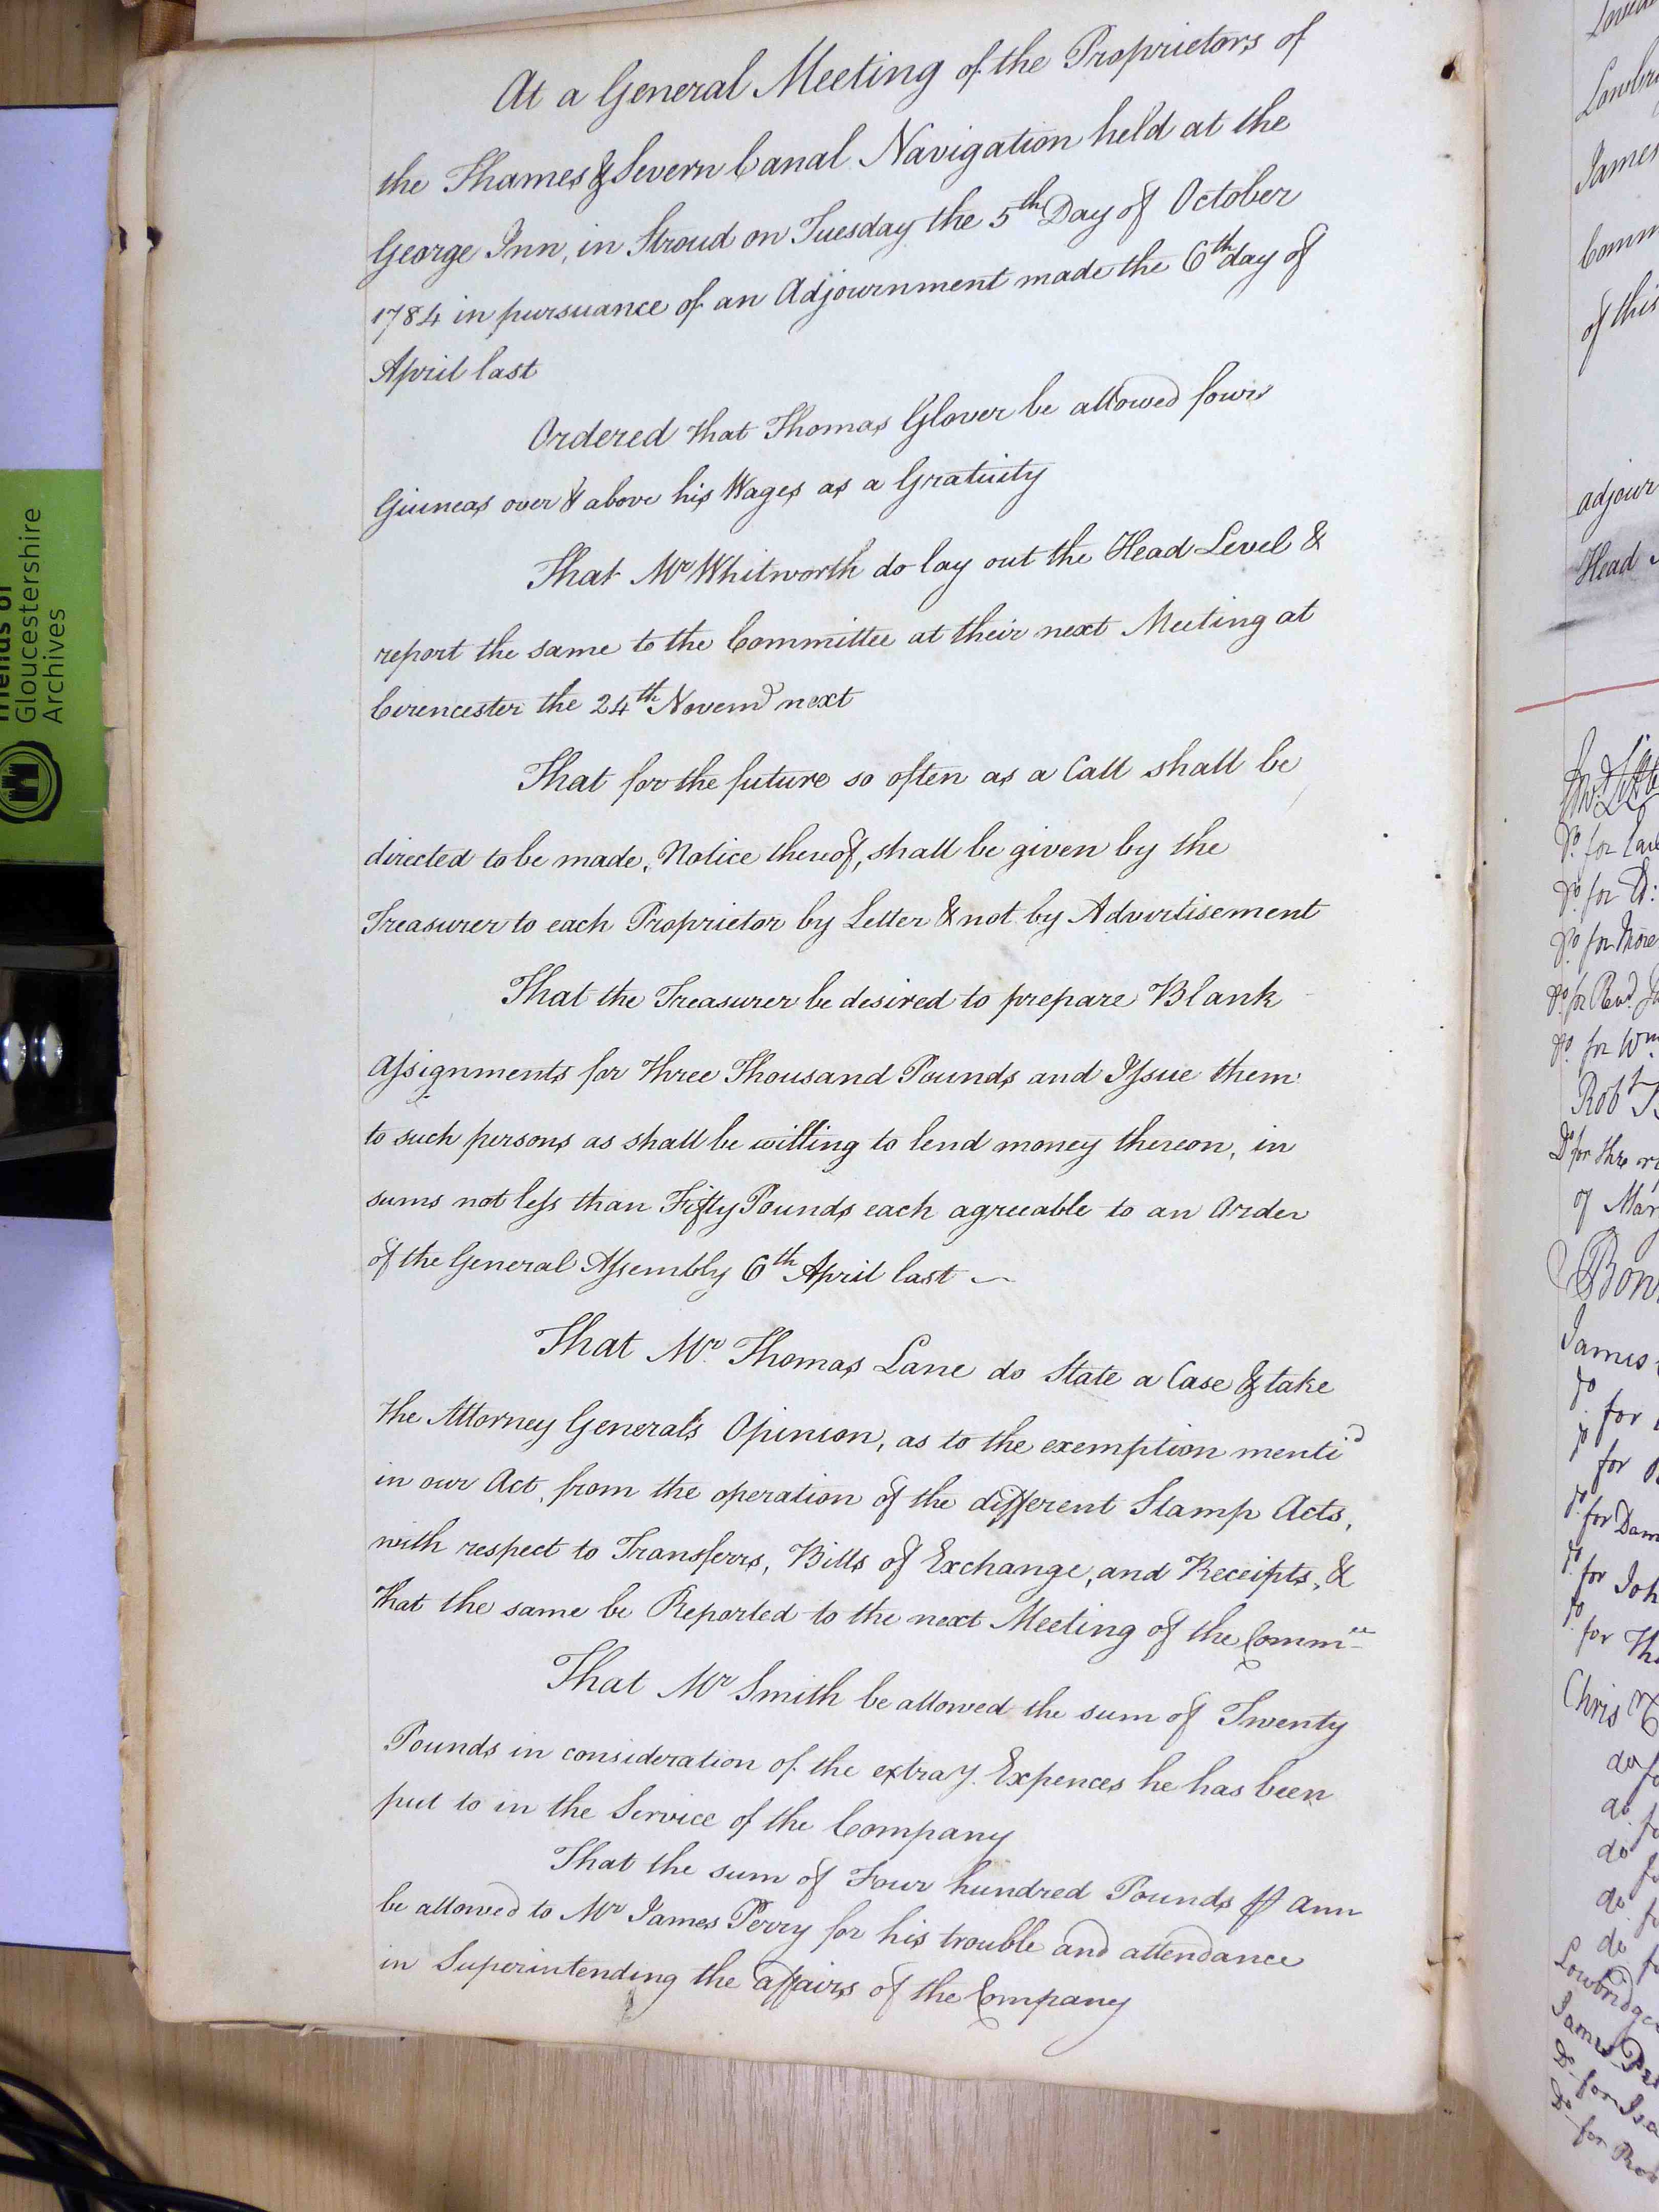 At a General Meeting of the Proprietors of
the Thames & Severn Canal Navigation held at the
George Inn, in Stroud on Tuesday the 5th Day of October
1784 in pursuance of an Adjournment made the 6th day of
April last
Ordered that Thomas Glover be allowed four
Guineas over & above his Wages as a Gratuity
That Mr Whitworth do lay out the Head Level &
report the same to the Committee at their next Meeting at
Cirencester the 24th Novemr next
That for the future so often as a Call shall be
directed to be made, Notice thereof, shall be given by the
Treasurer to each Proprietor by Letter & not by Advertisement
That the Treasurer be desired to prepare Blank
Assignments for Three Thousand Pounds and Issue them
to such persons as shall be willing to lend money thereon, in
sums not less than Fifty Pounds each agreeable to an Order
of the General Assembly 6th April last
That Mr. Thomas Lane do State a Case & take
the Attorney General's Opinion, as to the exemption menti'd
in our Act, from the operation of the different Stamp Acts,
with respect to Transferrs, Bills of Exchange, and Receipts, &
that the same be Reported to the next Meeting of the Commee
That Mr Smith be allowed the sum of Twenty
Pounds in consideration of the extray. Expences he has been
put to in the Service of the Company
That the sum of Four hundred Pounds ⅌ Ann
be allowed to Mr James Perry for his trouble and attendance
in Superintending the affairs of the Company
Friends of
Gloucestershire
Archives
James
of this
adjour
Head
do for
do. for
do for
do. for Wm
Robt
of Mar
James
do. for
do for
do. for Dam
do. for Joh
do. for Tho
do fo
do. fo
do fo
do. fo
do fo
Lowbridge
Do for Isa
Do for Rob